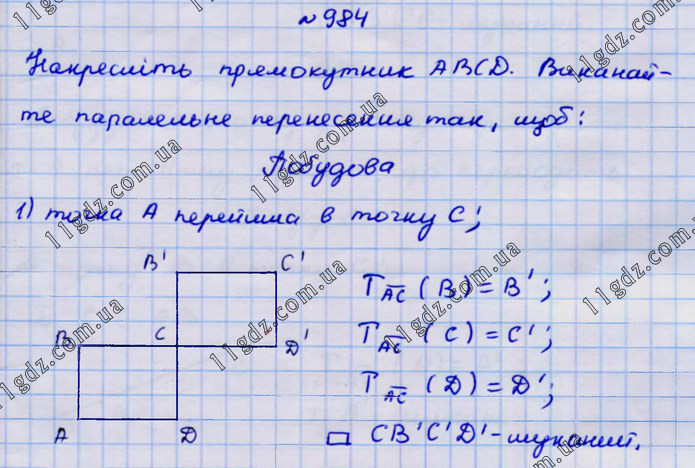 №984
Накресліть прямокутник ABCD. Виканай-
те паралельне перенесення так, щоб:
Побудова
1) точка A перейшла в точку C;
B' C'
T_AC (B) = B';
B C D'
T_AC (C) = C';
T_AC (D) = D';
A D
▭ CB'C'D' - шуканий.
11gdz.com.ua
11gdz.com.ua
11gdz.com.ua
11gdz.com.ua
11gdz.com.ua
11gdz.com.ua
11gdz.com.ua
11gdz.com.ua
11gdz.com.ua